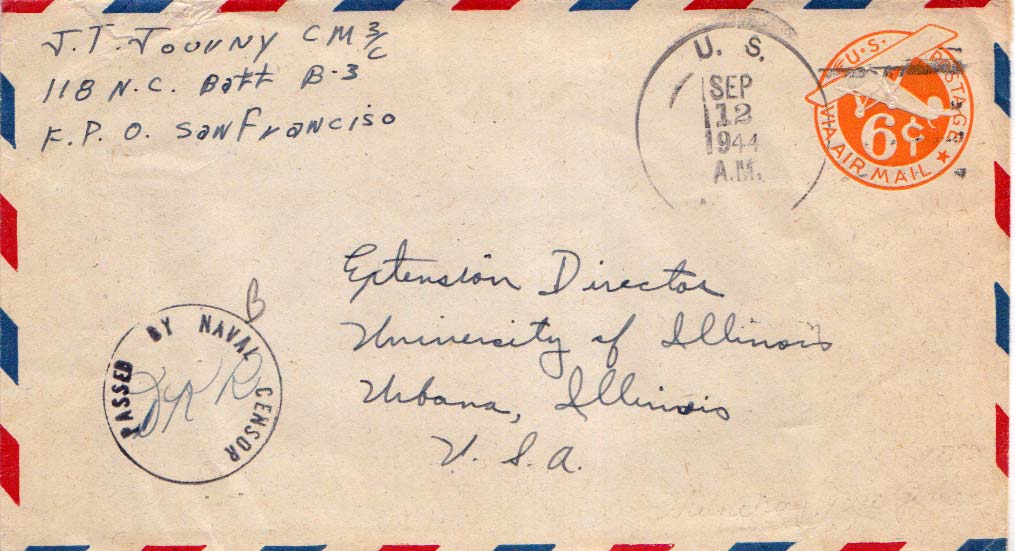 J. T. Journy CM 3/C
118 N.C. Batt B-3
F. P. O. San Franciso
U. S.
SEP
12
1944
A.M.
U.S. POSTAGE
6¢
VIA AIR MAIL
PASSED BY NAVAL CENSOR
B
Extension Director
University of Illinois
Urbana, Illinois
U. S. A.